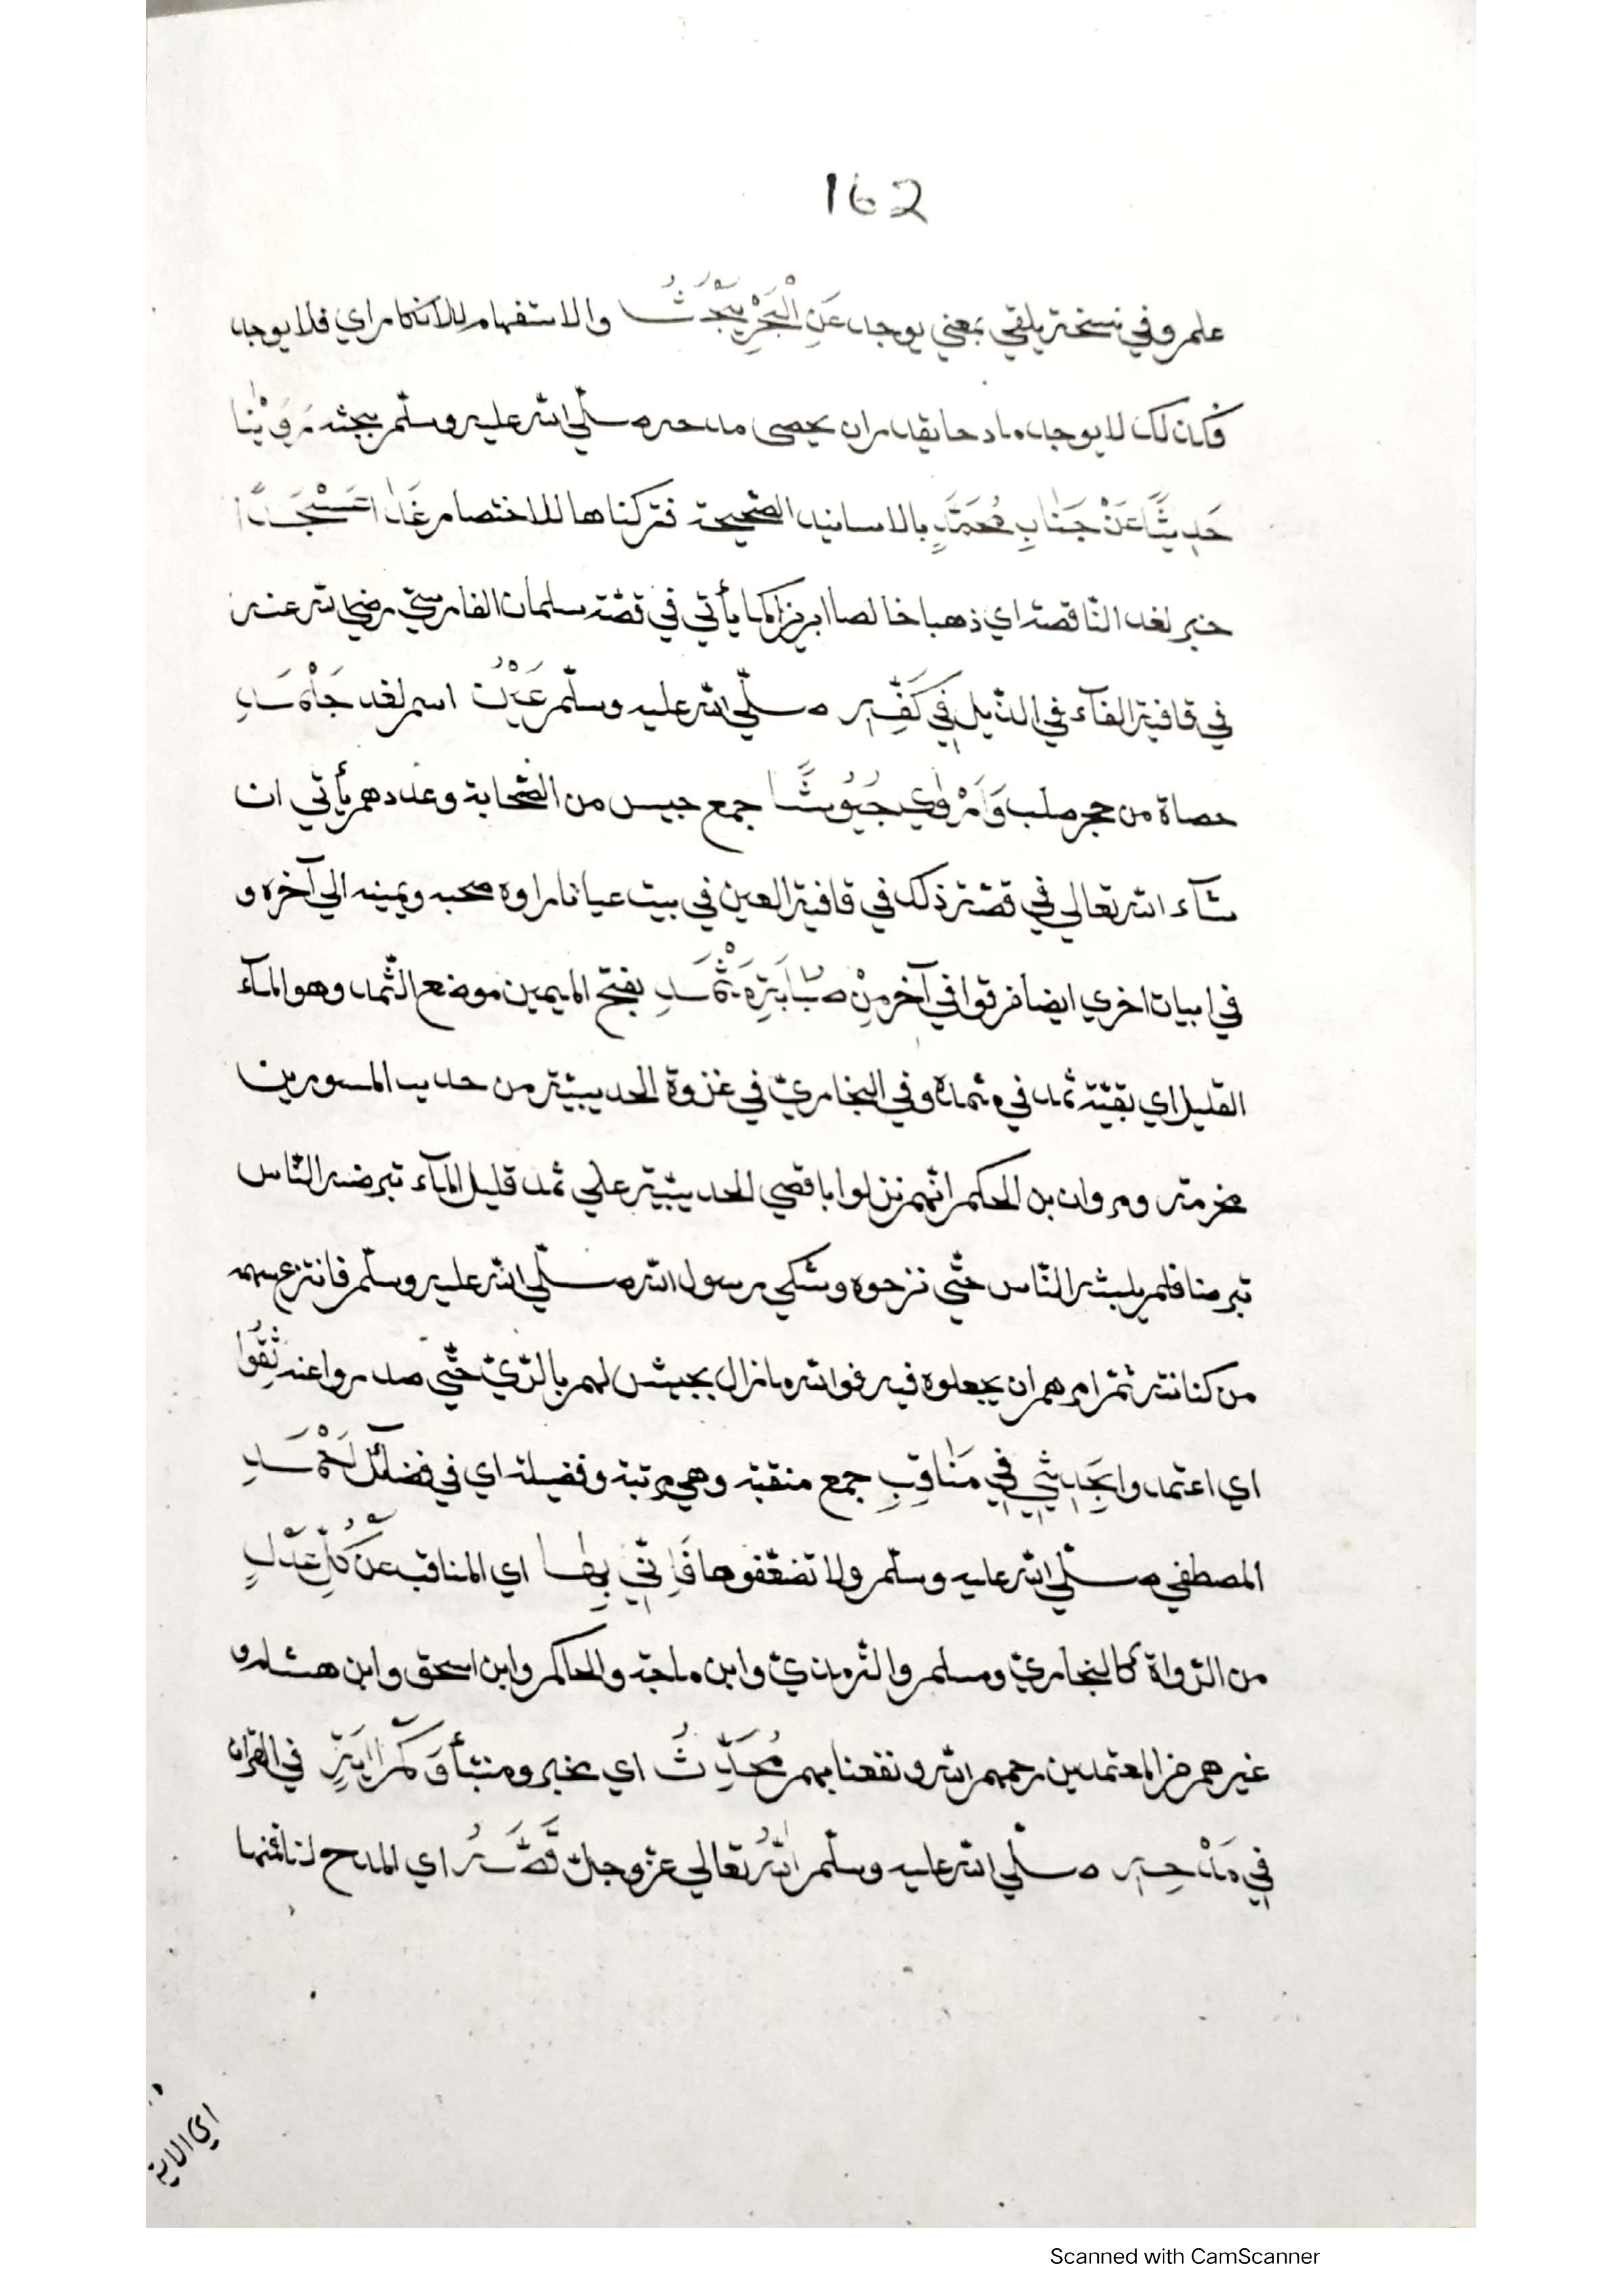 162
علمه وفي نسخة يلقي بمعني يوجد عَنِ الْبَحْرِ يَبْحَثُ والاستفهام للانكار اي فلا يوجد
فكذلك لا يوجد مادحا يقدر ان يحصى مدحه صلّي الله عليه وسلّم ببحثه رَوَيْنَا
حَدِيثًا عَنْ جَنَابِ مُحَمَّدٍ بالاسانيد الصّحيحة فتركناها للاختصار غَدَا عَسْجَدًا
خبر لغد النّاقصة اي ذهبا خالصا ابريزا كما يأتي في قصّة سلمان الفارسيّ رضي الله عنه
في قافية الفآء في الذّيل فِي كَفِّهِ صلّي الله عليه وسلّم عَيْنُ اسم لغد جَلْمَدِ
حصاة من حجر صلب وَاَرْوٰي جُيُوشًا جمع جيس من الصّحابة وعددهم يأتي ان
شآء الله تعالي في قصّة ذلك في قافية العين في بيت عيانا راوه صحبه ويمينه الي آخره و
في ابيات اخري ايضا فرقوا في آخر مِنْ صُبَابَةِ مَثْمَدِ بفتح الميمين موضع الثّمد وهو المآء
القليل اي بقيّة ثمد في مثمده وفي البخاريّ في غزوة الحديبيّة من حديب المسور بن
مخرمة ومروان بن الحكم انّهم نزلوا باقصي الحديبيّة علي ثمد قليل المآء تبرضه النّاس
تبرضا فلم يلبثه النّاس حتّي نزحوه وشكي رسول الله صلّي الله عليه وسلّم فانتزع سهمه
من كنانته ثمّ امرهم ان يجعلوه فيه فوالله مازال بجيش لهم بالرّيّ حتّي صدروا عنه ثِقُوا
اي اعتمدوا بِحَدِيثِي فِي مَنَاقِبِ جمع منقبة وهي مرتبة وفضيلة اي في فضآئل اَحْمَدِ
المصطفي صلّي الله عليه وسلّم ولا تضعّفوها فَاِنِّي بِهَا اي المناقب عَنْ كُلِّ عَدْلٍ
من الرّواة كالبخاريّ ومسلم والترمذيّ وابن ماجة والحاكم وابن اسحق وابن هشام و
غيرهم من المعتمدين رحمهم الله ونفعنا بهم مُحَدِّثُ اي مخبر ومنبّأ وَكَمْ اٰيَةٍ في القرآن
فِي مَدْحِهِ صلّي الله عليه وسلّم اللهُ تعالي عزّ وجلّ قَصَّهُ اي المدح لنا ثمنها
اي الاية
Scanned with CamScanner